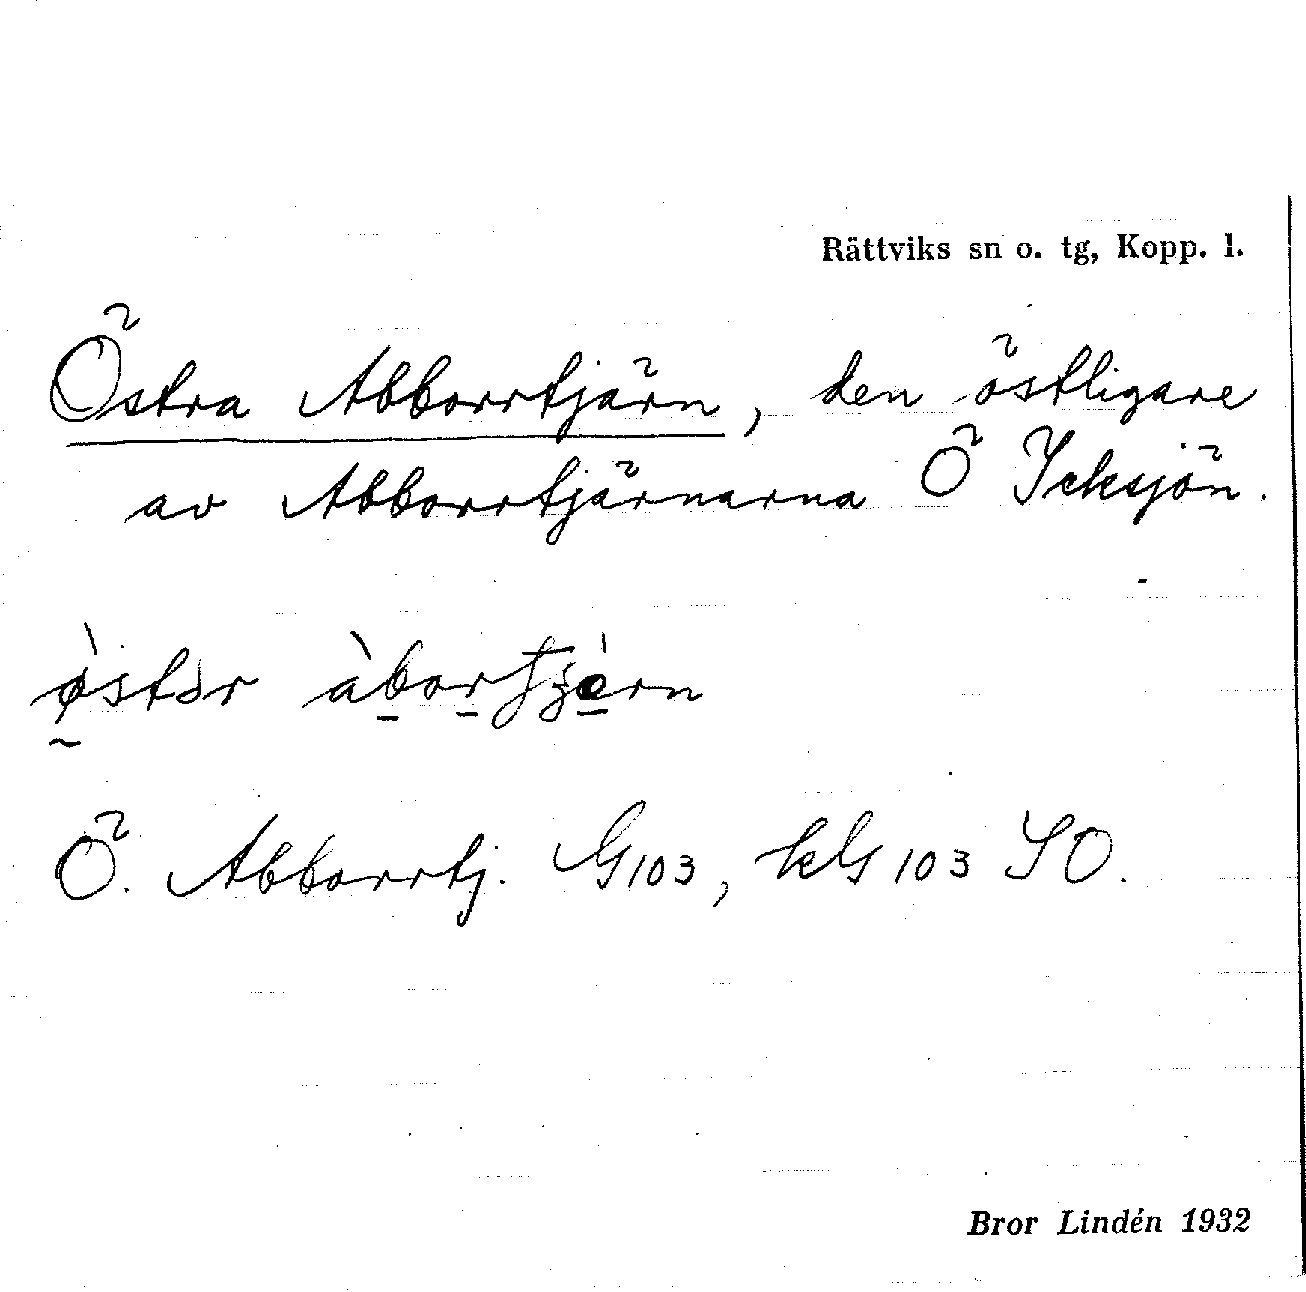 Rättviks sn o. tg, Kopp. l.
Östra Abborrtjärn, den östligare
av Abborrtjärnarna Ö Icksjön.
Ö. Abborrtj. G103, kG 103 SO.
Bror Lindén 1932